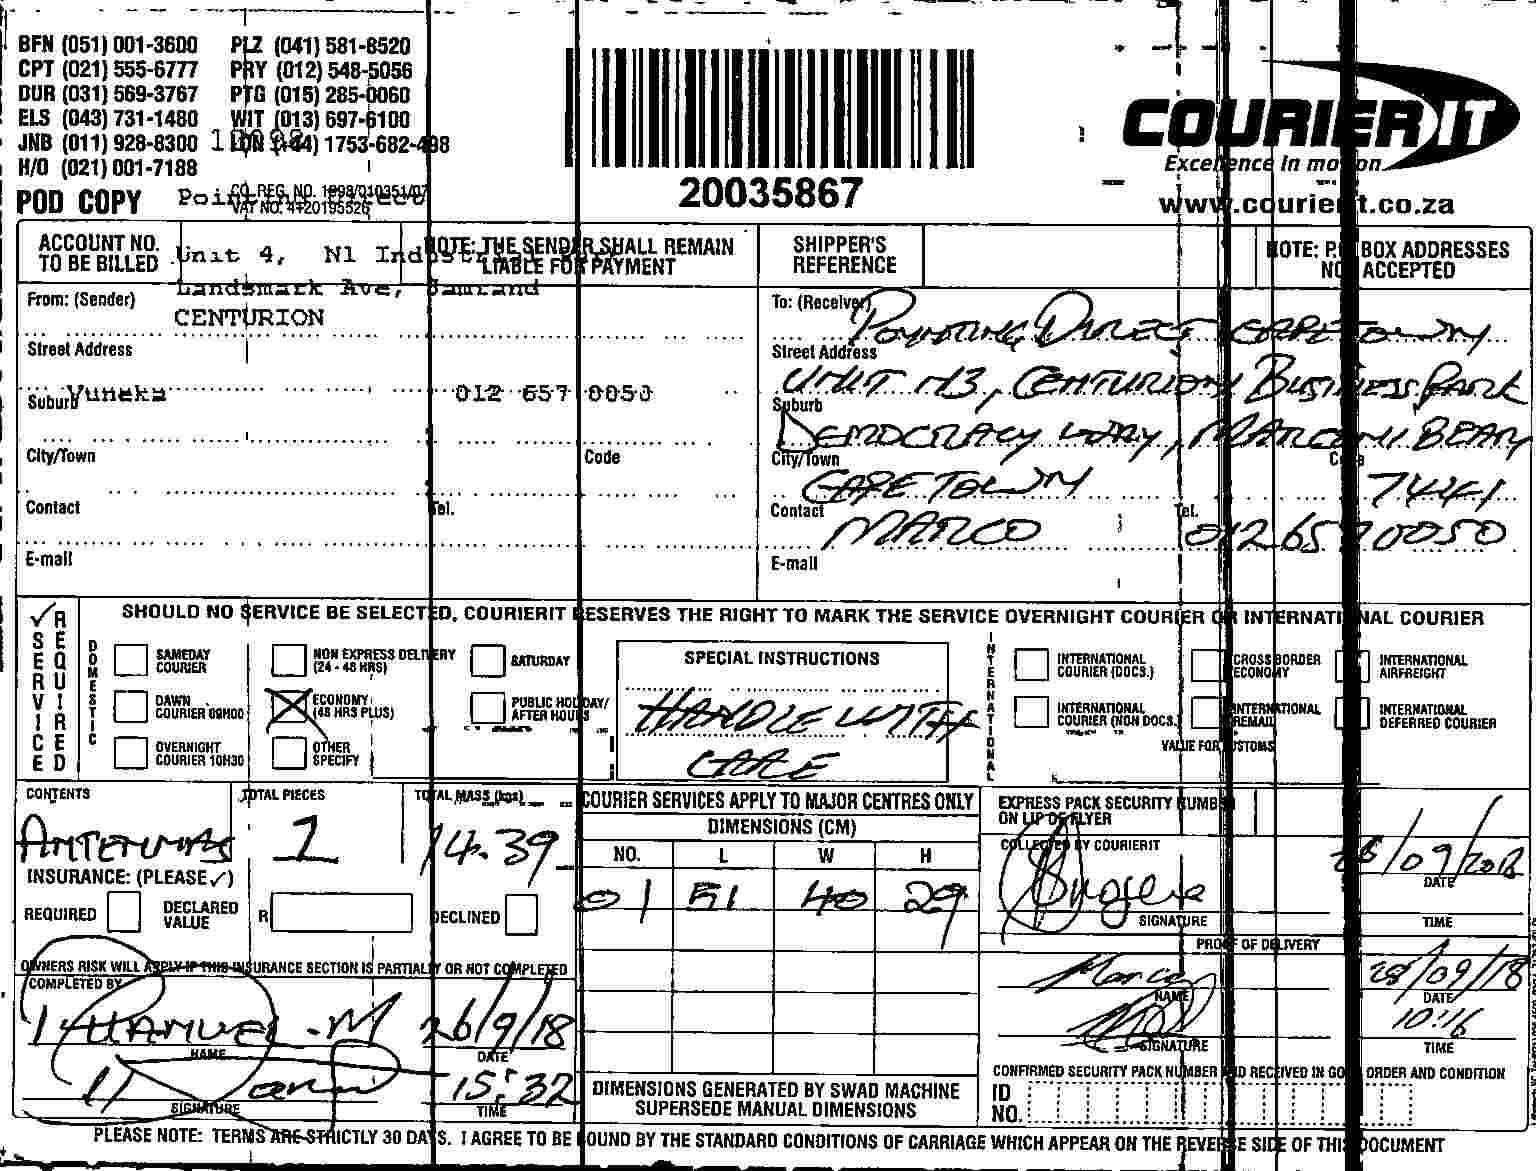 BFN (051) 001-3600 PLZ (041) 581-8520
CPT (021) 555-6777 PRY (012) 548-5056
DUR (031) 569-3767 PTG (015) 285-0060
ELS (043) 731-1480 WIT (013) 697-6100
JNB (011) 928-8300 LON (+44) 1753-682-498
H/O (021) 001-7188
POD COPY
CO. REG. NO. 1998/010351/07
VAT NO. 4720195526
20035867
COURIER IT
Excellence in motion
www.courierit.co.za
ACCOUNT NO. TO BE BILLED
NOTE: THE SENDER SHALL REMAIN LIABLE FOR PAYMENT
SHIPPER'S REFERENCE
NOTE: P.O. BOX ADDRESSES NOT ACCEPTED
Unit 4, N1
Landsmark Ave, Samrand
From: (Sender)
CENTURION
Street Address
Suburb Yuneka 012 657 0050
City/Town Code
Contact Tel.
E-mail
To: (Receiver) POYNTING DIRECT CAPE TOWN
Street Address UNIT H3, CENTURION BUSINESS PARK
Suburb DEMOCRACY WAY, MARCONI BEAM
City/Town CAPE TOWN Code 7441
Contact MARCO Tel. 012 6570050
E-mail
SERVICE REQUIRED
SHOULD NO SERVICE BE SELECTED, COURIERIT RESERVES THE RIGHT TO MARK THE SERVICE OVERNIGHT COURIER OR INTERNATIONAL COURIER
DOMESTIC
SAMEDAY COURIER
NON EXPRESS DELIVERY (24 - 48 HRS)
SATURDAY
DAWN COURIER 09H00
ECONOMY (48 HRS PLUS)
PUBLIC HOLIDAY/ AFTER HOURS
OVERNIGHT COURIER 10H30
OTHER SPECIFY
SPECIAL INSTRUCTIONS
HANDLE WITH
CARE
INTERNATIONAL
INTERNATIONAL COURIER (DOCS.)
CROSS BORDER ECONOMY
INTERNATIONAL AIRFREIGHT
INTERNATIONAL COURIER (NON DOCS.)
INTERNATIONAL REMAIL
INTERNATIONAL DEFERRED COURIER
VALUE FOR CUSTOMS
CONTENTS TOTAL PIECES TOTAL MASS (kgs)
ANTENNAS 1 14.39
INSURANCE: (PLEASE ✓)
REQUIRED DECLARED VALUE R DECLINED
OWNERS RISK WILL APPLY IF THIS INSURANCE SECTION IS PARTIALLY OR NOT COMPLETED
COMPLETED BY
26/9/18
NAME DATE
15:32
SIGNATURE TIME
COURIER SERVICES APPLY TO MAJOR CENTRES ONLY
DIMENSIONS (CM)
NO. L W H
01 51 40 29
DIMENSIONS GENERATED BY SWAD MACHINE
SUPERSEDE MANUAL DIMENSIONS
EXPRESS PACK SECURITY NUMBER ON LIP OF FLYER
COLLECTED BY COURIERIT
DATE
SIGNATURE TIME
PROOF OF DELIVERY
Marco 28/09/18
NAME DATE
10:16
SIGNATURE TIME
CONFIRMED SECURITY PACK NUMBER AND RECEIVED IN GOOD ORDER AND CONDITION
ID NO.
PLEASE NOTE: TERMS ARE STRICTLY 30 DAYS. I AGREE TO BE BOUND BY THE STANDARD CONDITIONS OF CARRIAGE WHICH APPEAR ON THE REVERSE SIDE OF THIS DOCUMENT